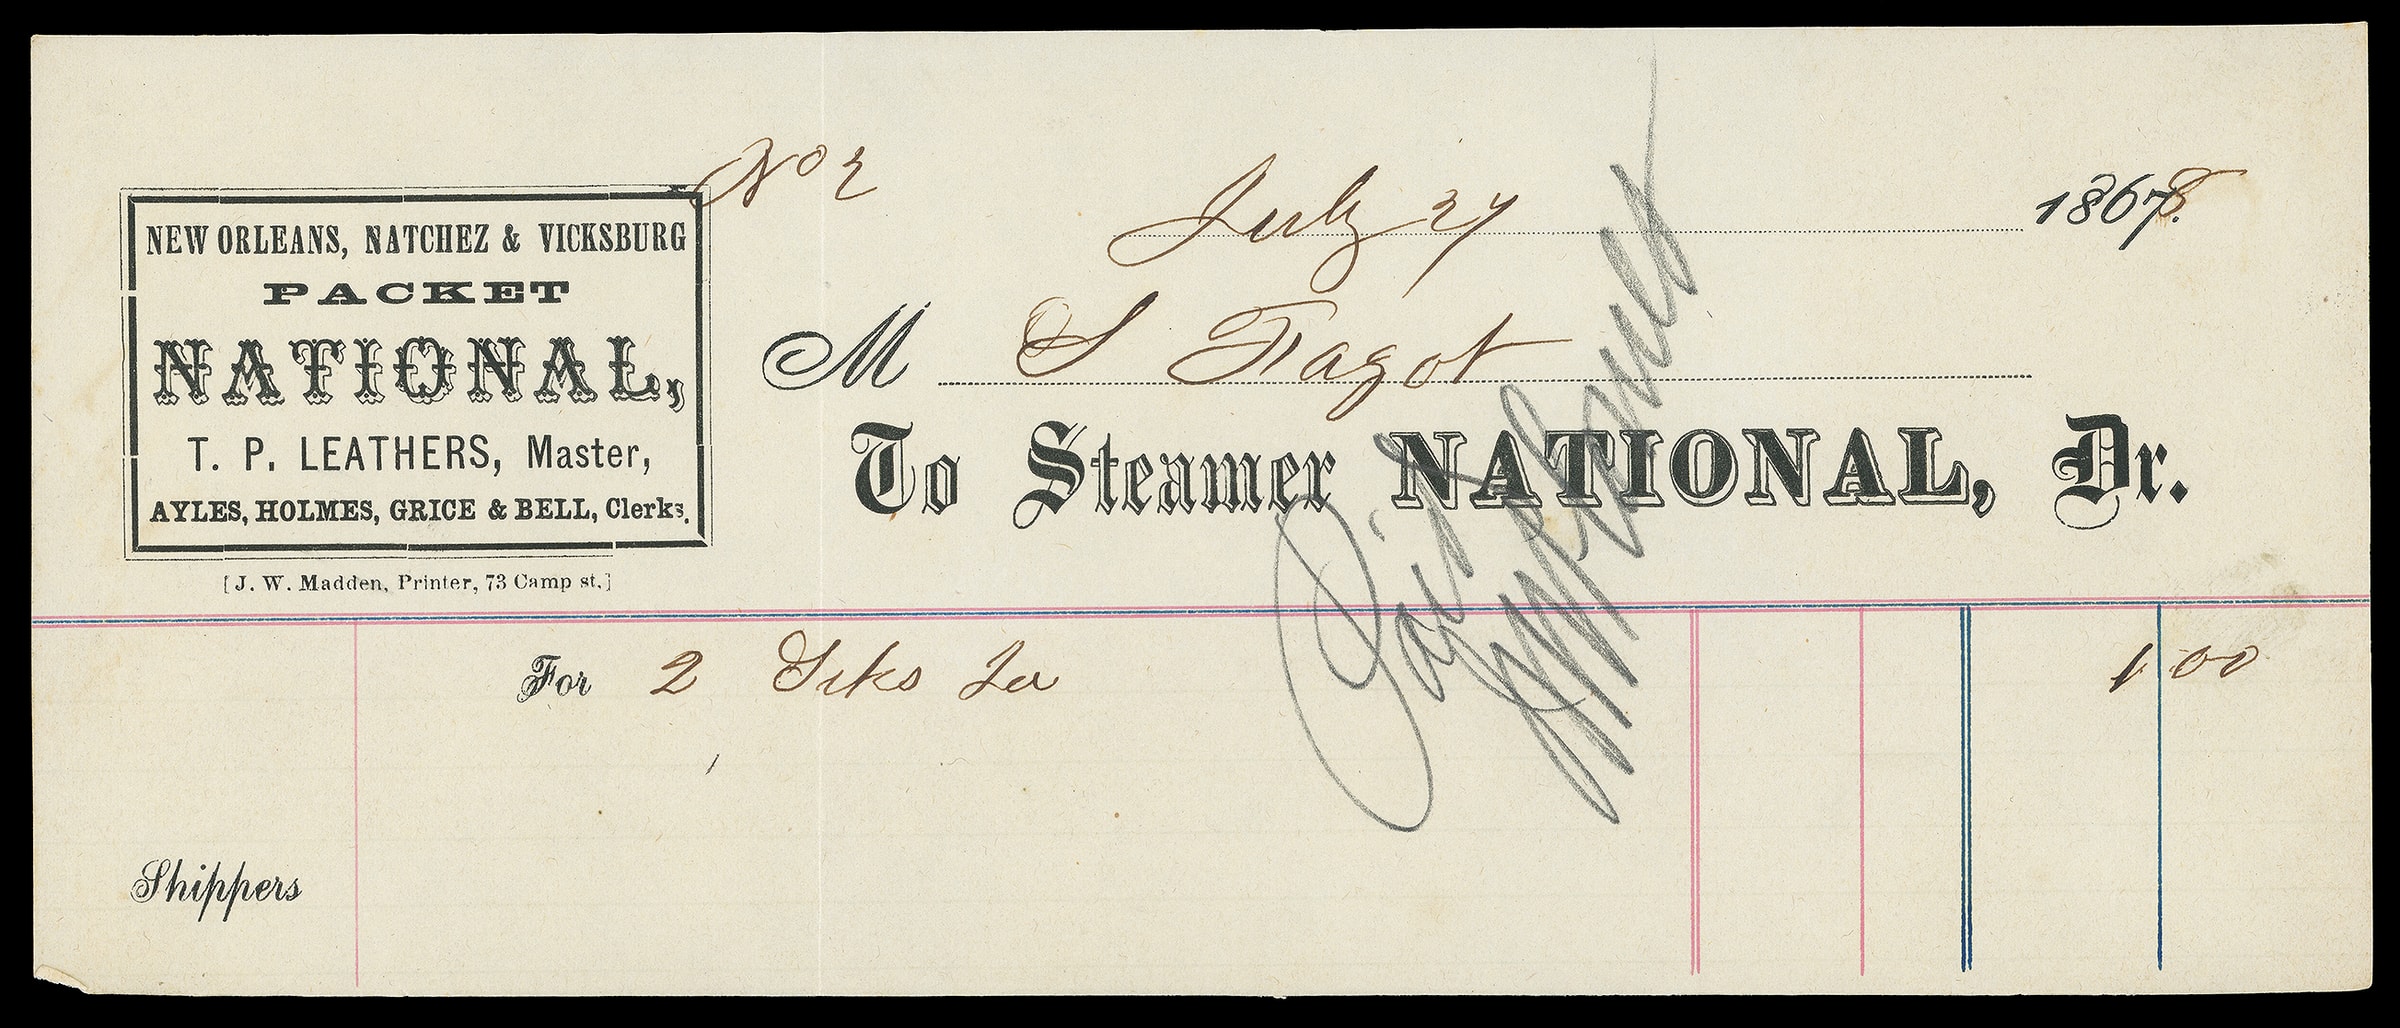 NEW ORLEANS, NATCHEZ & VICKSBURG
PACKET
NATIONAL,
T. P. LEATHERS, Master,
AYLES, HOLMES, GRICE & BELL, Clerks.
[J. W. Madden, Printer, 73 Camp st.]
No 2
July 27 1868
M S Fagot
To Steamer NATIONAL, Dr.
For 2 Sks 1 00
Paid
Shippers